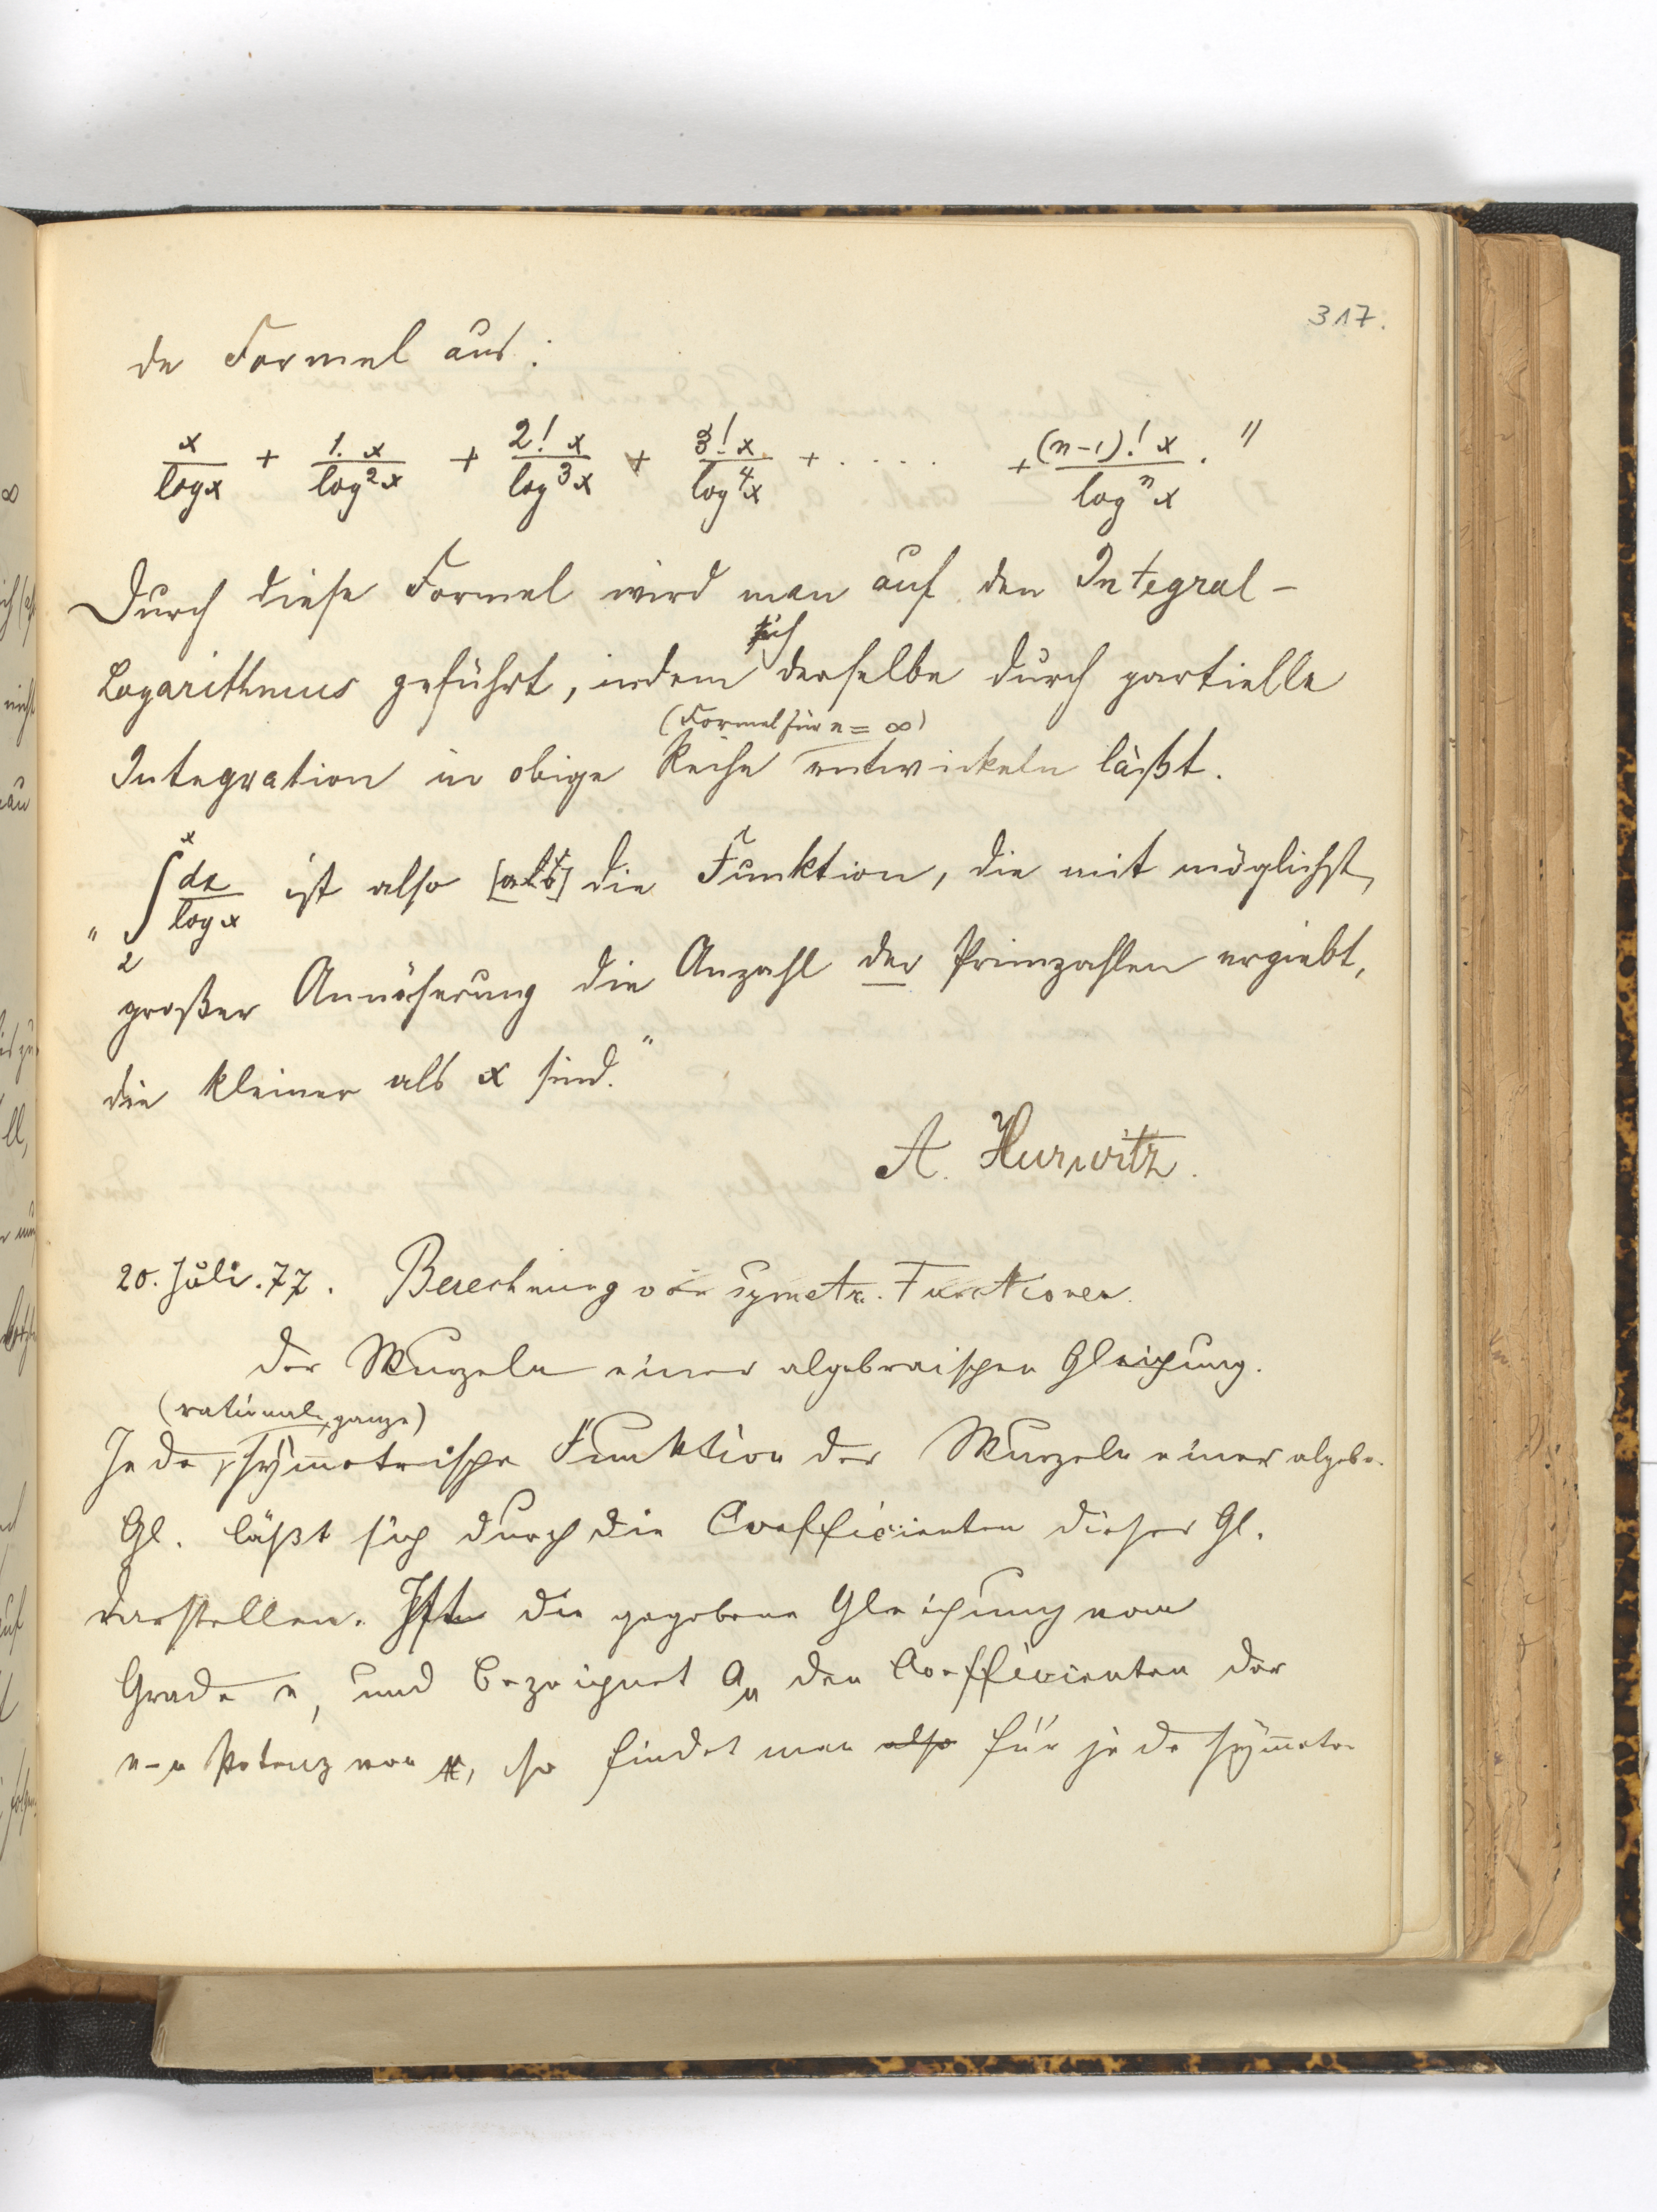 317.
de Formel aus:
x/log x + 1. x/log²x + 2! x/log³x + 3! x/log⁴x + ..... + (n-1)! x/logⁿx . "
Durch diese Formel wird man auf den Integral-
Logarithmus geführt, indem sich derselbe durch partielle
(Formel für n = ∞)
Integration in obige Reihe entwickeln läßt.
" ∫₂ˣ dx/log x ist also [als] die Funktion, die mit möglichst
großer Annäherung die Anzahl der Primzahlen ergiebt,
die kleiner als x sind."
A. Hurwitz.
20. Juli. 77. Berechnung von symetr. Functionen
der Wurzeln einer algebraischen Gleichung.
(rationale ganze)
Jede symmetrische Funktion der Wurzeln einer algebr.
Gl. läßt sich durch die Coefficienten dieser Gl.
darstellen. Ist die gegebene Gleichung vom
Grade n, und bezeichnet aₙ den Coefficienten der
n-n Potenz von x, so findet man also für jede symmetr